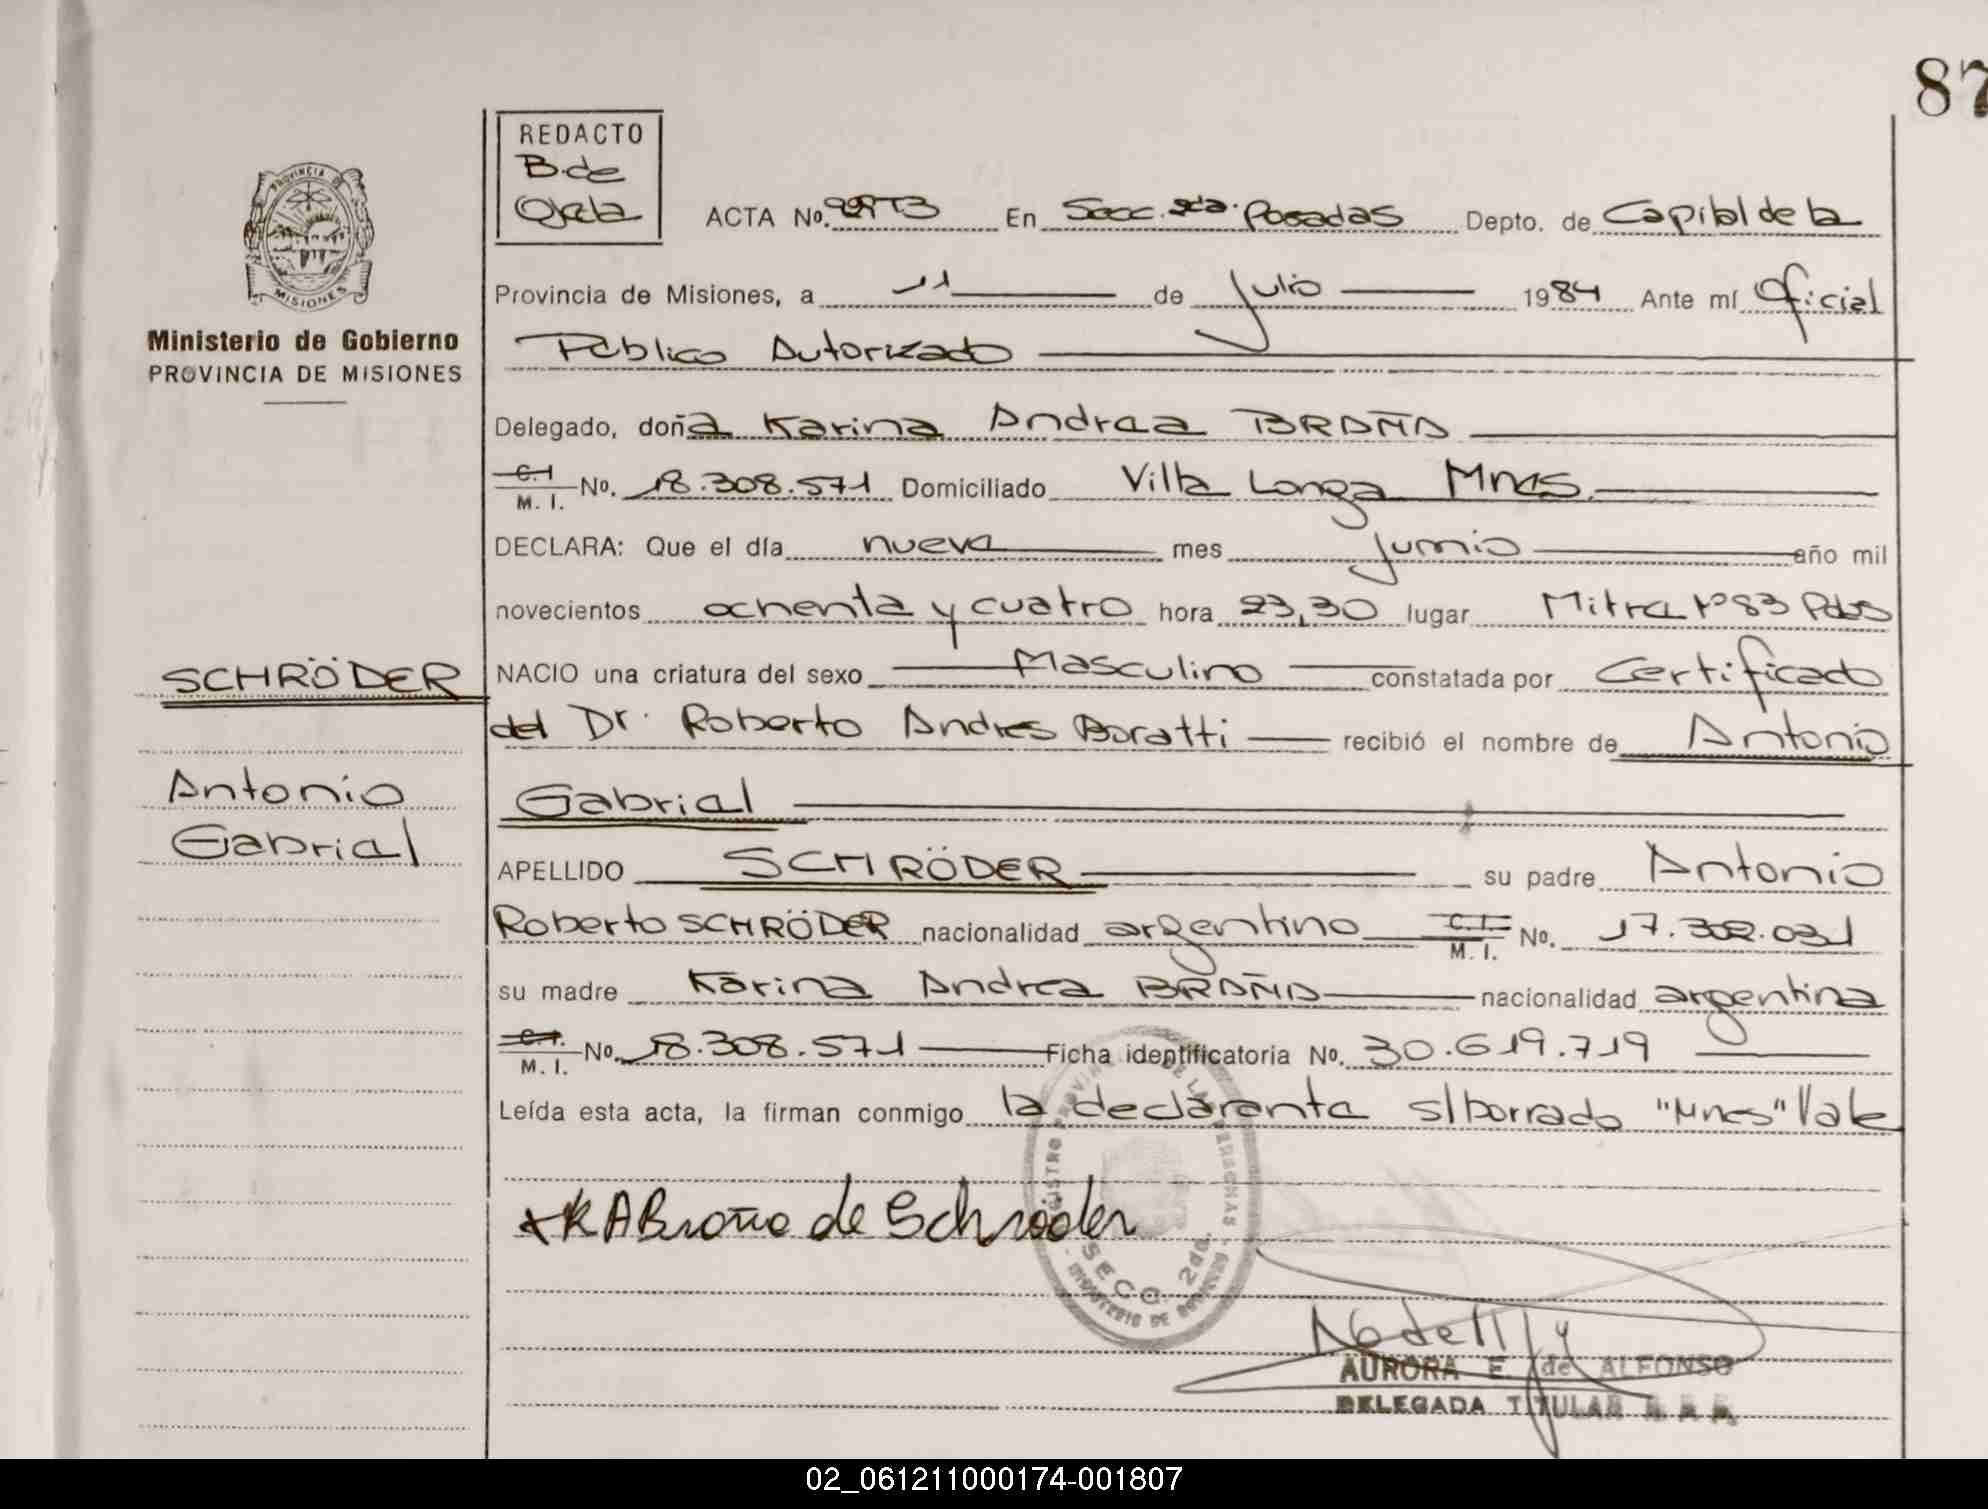 87
REDACTO
B. de
Ojeda
ACTA No. En Secc. 2da. Posadas Depto. de Capital de la
PROVINCIA DE MISIONES
Provincia de Misiones, a 11 de Julio 1984 Ante mí Oficial
Ministerio de Gobierno
PROVINCIA DE MISIONES
Público Autorizado
Delegado, doña Karina Andrea BRAÑA
C.I M. I. No. 18.308.571 Domiciliado Villa Longa Mnes.
DECLARA: Que el día nueve mes junio año mil
novecientos ochenta y cuatro hora 23,30 lugar Mitra Nº 83 Pdas
SCHRÖDER
NACIO una criatura del sexo Masculino constatada por Certificado
del Dr. Roberto Andres Boratti recibió el nombre de Antonio
Antonio
Gabriel
Gabriel
APELLIDO SCHRÖDER su padre Antonio
Roberto SCHRÖDER nacionalidad argentino C.I. M. I. No. 17.302.031
su madre Karina Andrea BRAÑA nacionalidad argentina
C.I. M. I. No. 18.308.571 Ficha identificatoria No. 30.619.719
Leída esta acta, la firman conmigo la declarante s/borrado "Mnes" Vale
KABraña de Schröder
SECC. 2da.
AURORA E. de ALFONSO
DELEGADA TITULAR
02_061211000174-001807